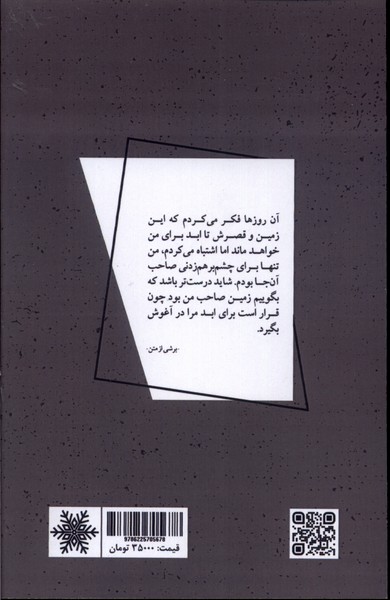 آن روزها فکر می‌کردم که این
زمین و قصرش تا ابد برای من
خواهد ماند اما اشتباه می‌کردم، من
تنها برای چشم‌برهم‌زدنی صاحب
آن‌جا بودم. شاید درست‌تر باشد که
بگوییم زمین صاحب من بود چون
قرار است برای ابد مرا در آغوش
بگیرد.
-برشی از متن-
9786225705678
قیمت: ۳۵۰۰۰ تومان